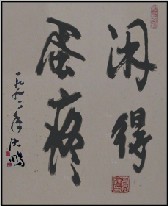 闲得
蛋疼
沈鹏